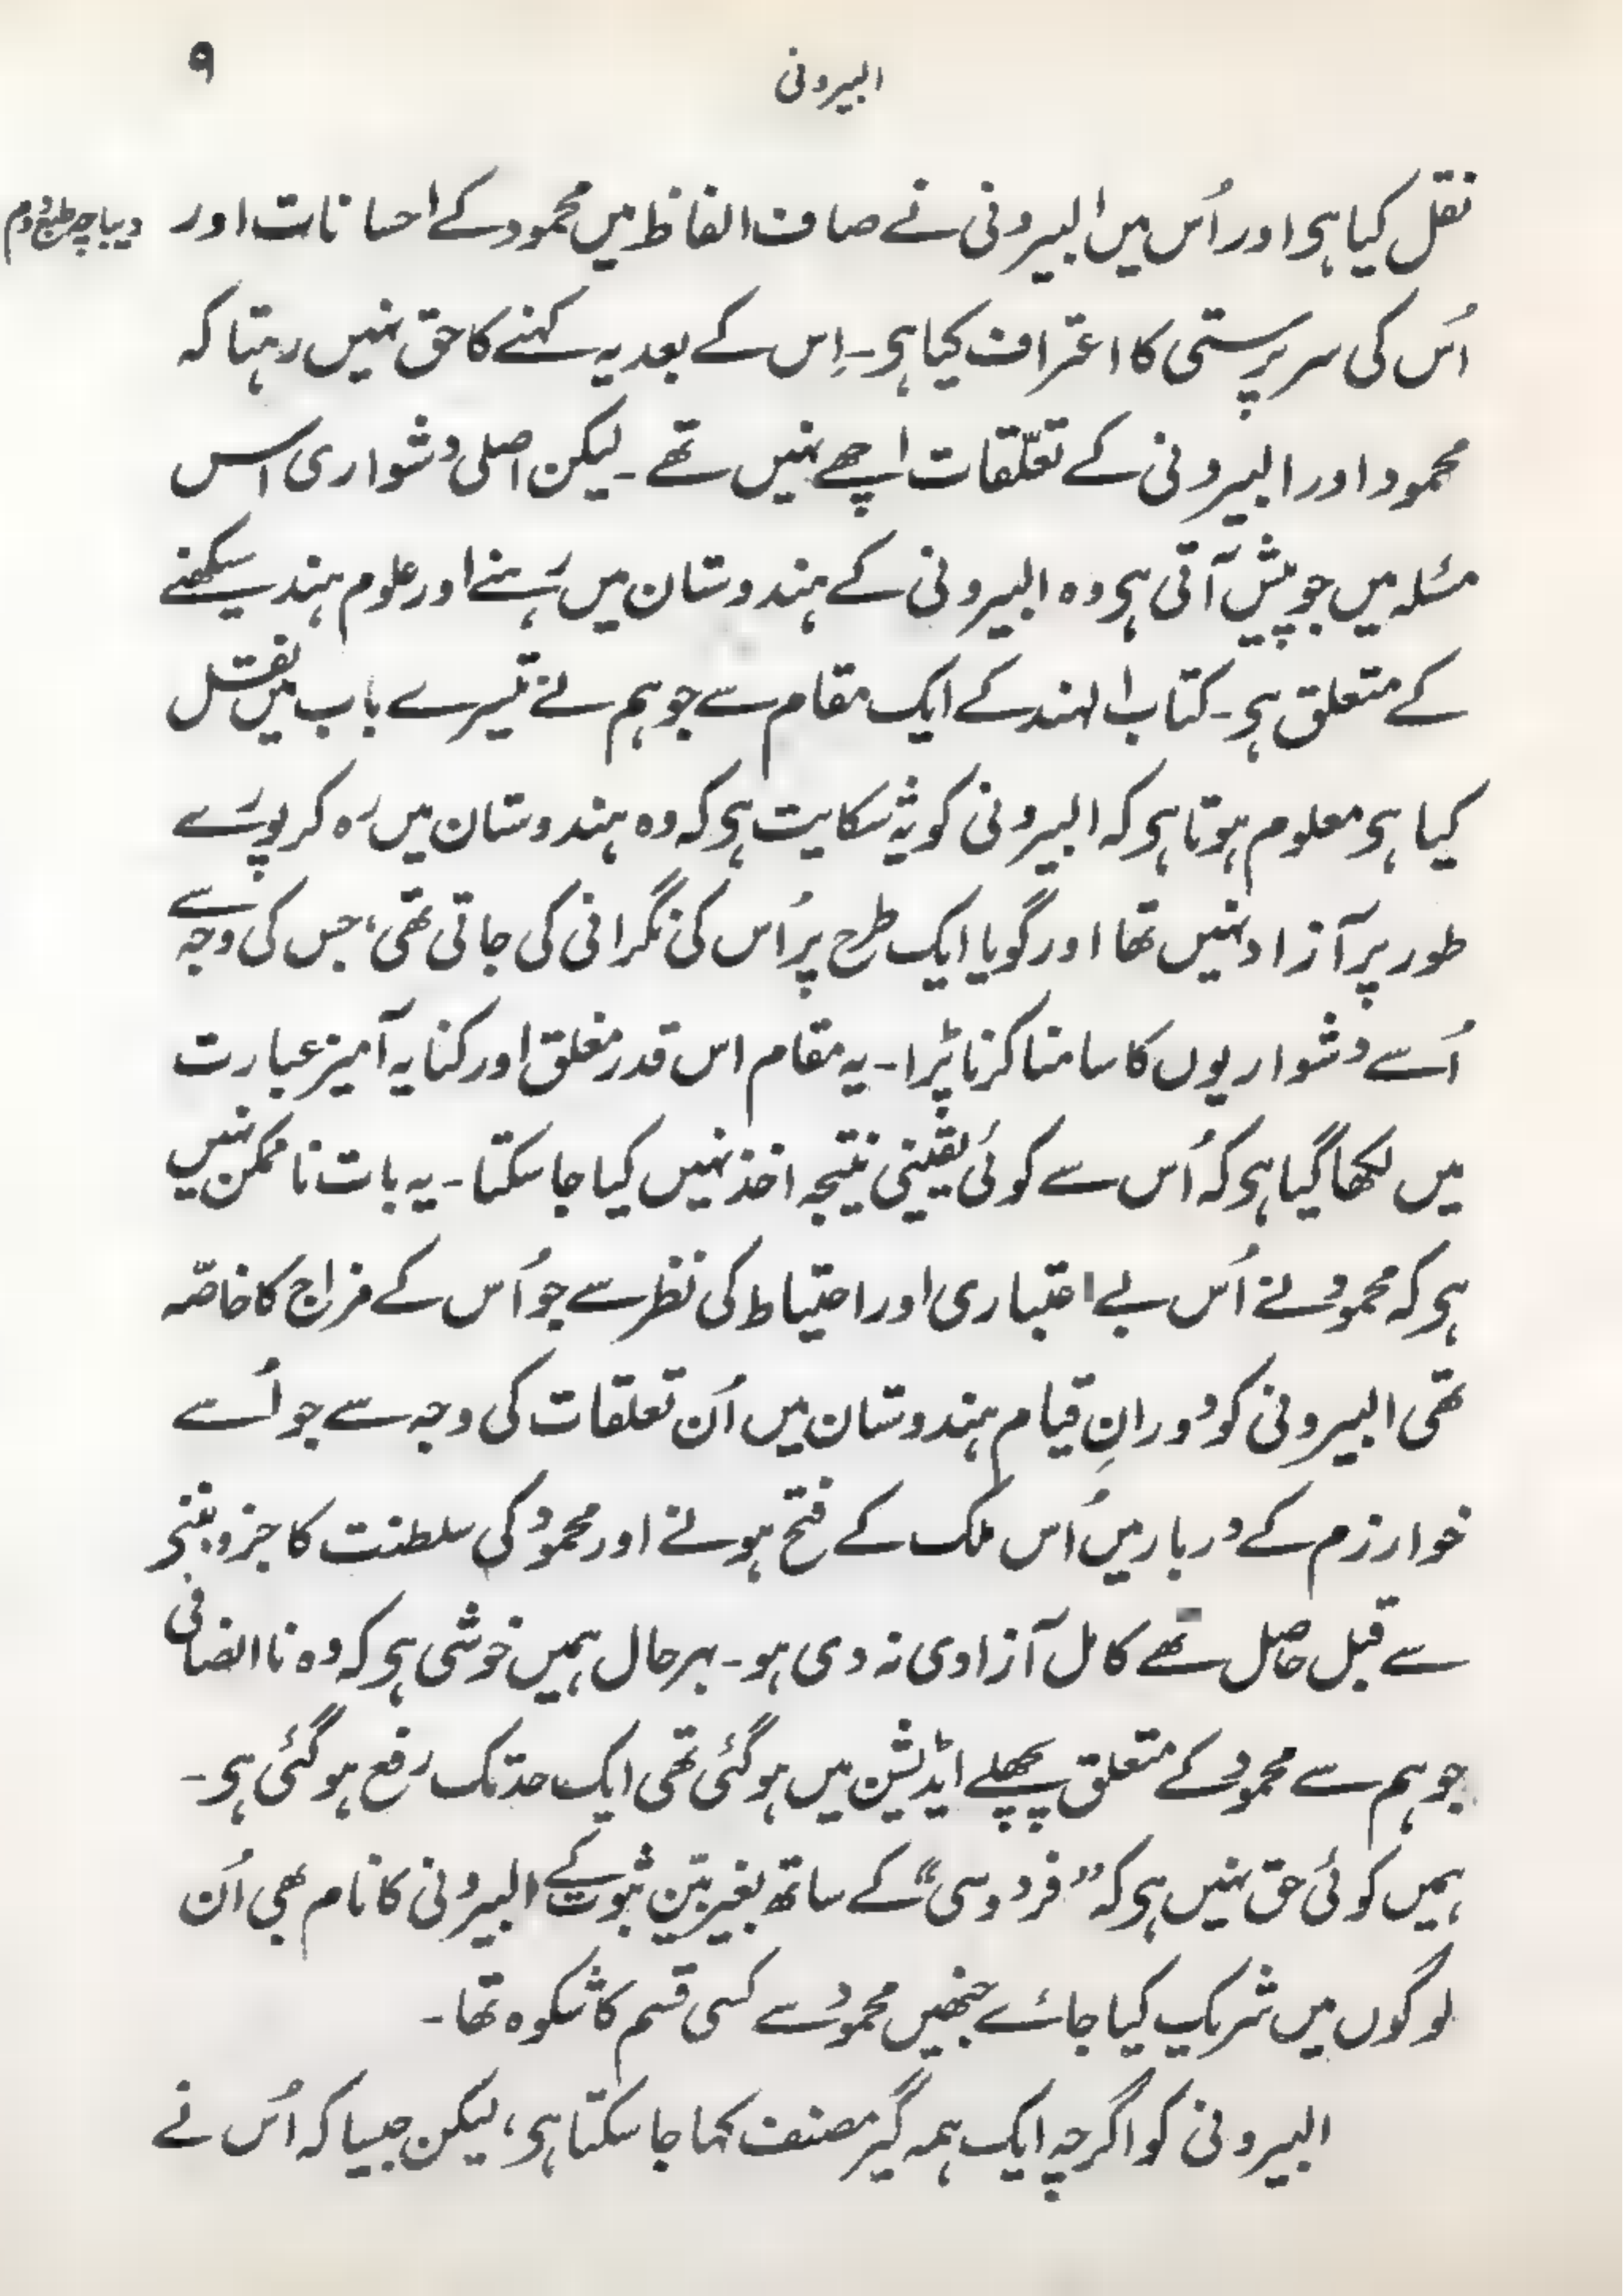 البیرونی
۹
نقل کیا ہی اور اُس میں البیرونی نے صاف الفاظ میں محمود کے احسانات اور
دیباچہ طبع دوم
اُس کی سرپرستی کا اعتراف کیا ہی۔ اِس کے بعد یہ کہنے کا حق نہیں رہتا کہ
محمود اور البیرونی کے تعلّقات اچھے نہیں تھے۔ لیکن اصلی دشواری اس
مسٔلہ میں جو پیش آتی ہی وہ البیرونی کے ہندوستان میں رَہنے اور علوم ہند سیکھنے
کے متعلق ہی۔ کتاب الہند کے ایک مقام سے جو ہم نے تیسرے باب میں نقل
کیا ہی معلوم ہوتا ہی کہ البیرونی کو یہ شکایت ہی کہ وہ ہندوستان میں رَہ کر پورَے
طور پر آزاد نہیں تھا اور گویا ایک طرح پر اُس کی نگرانی کی جاتی تھی، جس کی وجہ سے
اُسے دشواریوں کا سامنا کرنا پڑا۔ یہ مقام اس قدر مغلق اور کنایہ آمیز عبارت
میں لکھا گیا ہی کہ اُس سے کوئی یقینی نتیجہ اخذ نہیں کیا جا سکتا۔ یہ بات نا ممکن نہیں
ہی کہ محمود نے اُس بے اعتباری اور احتیاط کی نظر سے جو اُس کے مزاج کا خاصّہ
تھی البیرونی کو دورانِ قیام ہندوستان میں اُن تعلقات کی وجہ سے جو اُسے
خوارزم کے دربار میں اُس ملک کے فتح ہونے اور محمود کی سلطنت کا جزو بننے
سے قبل حاصل تھے کامل آزادی نہ دی ہو۔ بہرحال ہمیں خوشی ہی کہ وہ نا انصافی
جو ہم سے محمود کے متعلق پچھلے ایڈیشن میں ہو گئی تھی ایک حد تک رفع ہو گئی ہی۔
ہمیں کوئی حق نہیں ہی کہ ”فردوسی“ کے ساتھ بغیر بیّن ثبوت کے البیرونی کا نام بھی اُن
لوگوں میں شریک کیا جائے جنھیں محمود سے کسی قسم کا شکوہ تھا۔
البیرونی کو اگرچہ ایک ہمہ گیر مصنف کہا جا سکتا ہی، لیکن جیسا کہ اُس نے